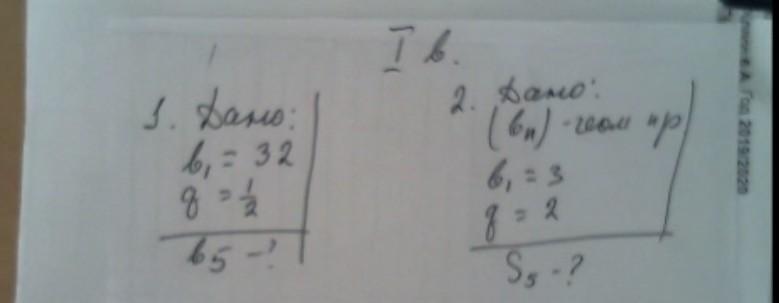 I в.
1. Дано:
b₁ = 32
q = 1/2
b₅ - ?
2. Дано:
(bₙ) - геом пр
b₁ = 3
q = 2
S₅ - ?
Год 2019/2020